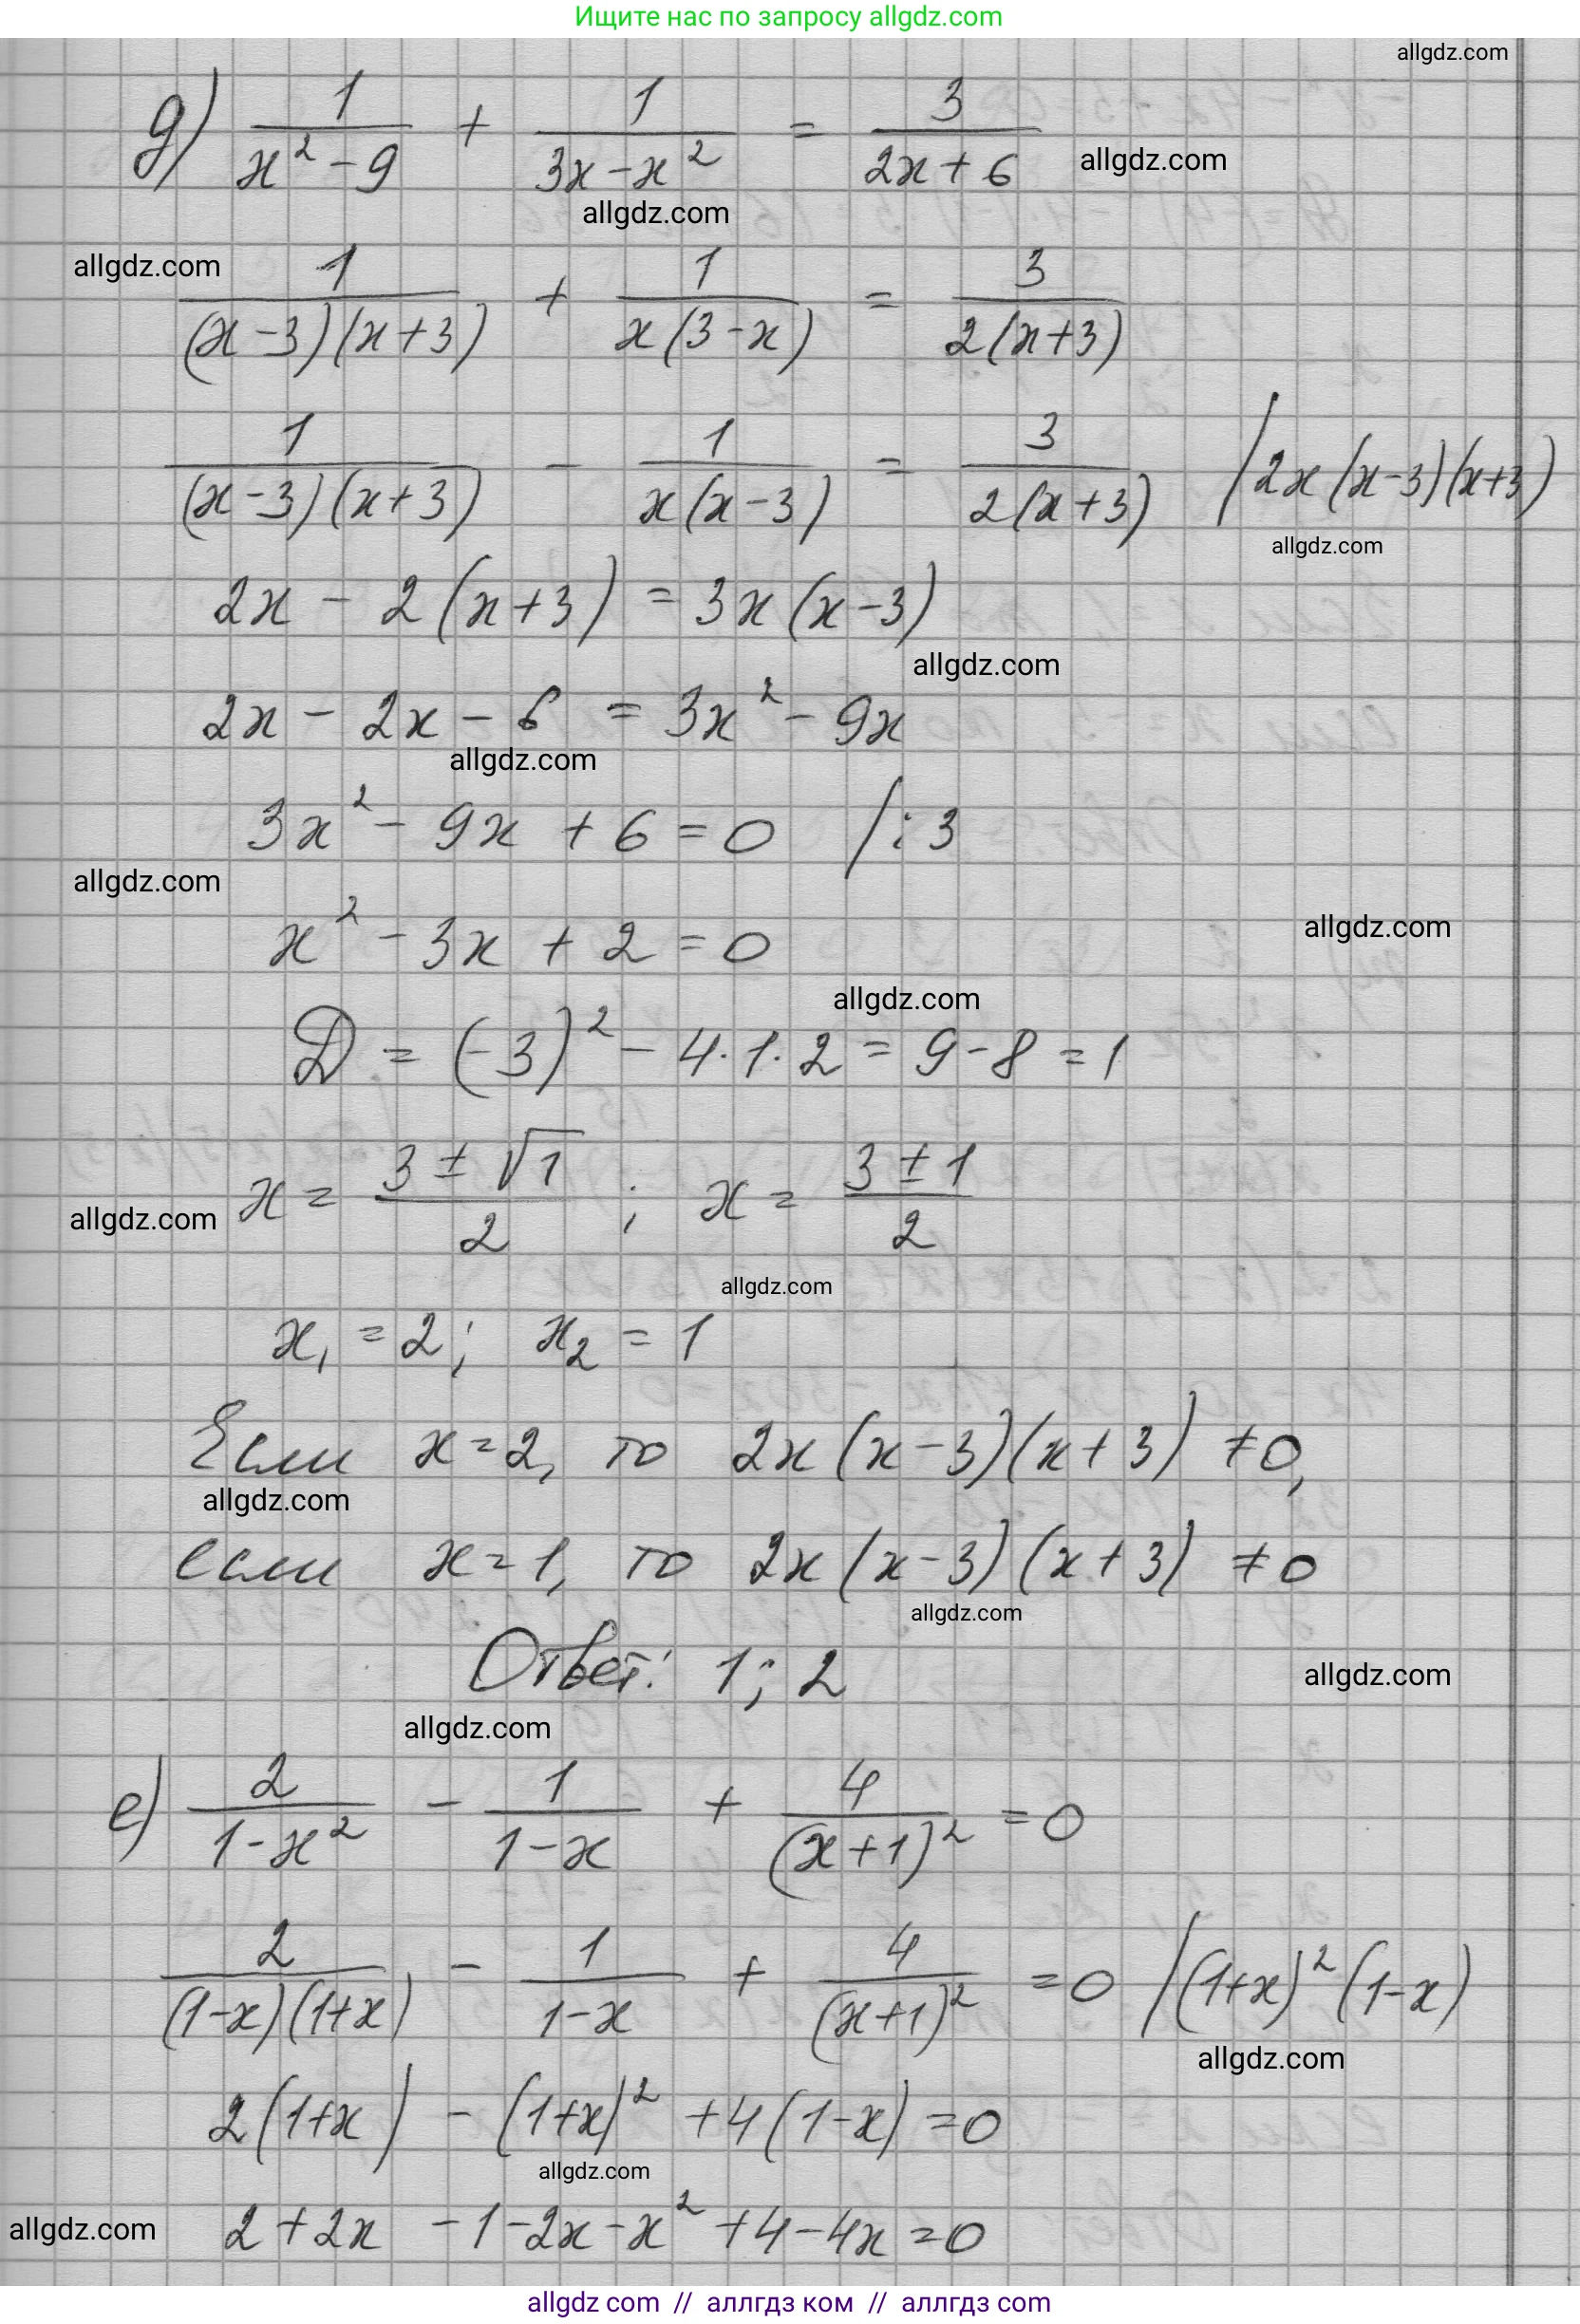 Ищите нас по запросу allgdz.com
allgdz.com
д) 1/(x² - 9) + 1/(3x - x²) = 3/(2x + 6)
allgdz.com
allgdz.com
allgdz.com
1/((x - 3)(x + 3)) + 1/(x(3 - x)) = 3/(2(x + 3))
1/((x - 3)(x + 3)) - 1/(x(x - 3)) = 3/(2(x + 3)) / 2x(x - 3)(x + 3)
allgdz.com
2x - 2(x + 3) = 3x(x - 3)
allgdz.com
2x - 2x - 6 = 3x² - 9x
allgdz.com
3x² - 9x + 6 = 0 /: 3
allgdz.com
allgdz.com
x² - 3x + 2 = 0
allgdz.com
D = (-3)² - 4·1·2 = 9 - 8 = 1
x = (3 ± √1)/2 ; x = (3 ± 1)/2
allgdz.com
allgdz.com
x₁ = 2; x₂ = 1
Если x = 2, то 2x(x - 3)(x + 3) ≠ 0,
allgdz.com
если x = 1, то 2x(x - 3)(x + 3) ≠ 0
allgdz.com
Ответ: 1; 2
allgdz.com
allgdz.com
е) 2/(1 - x²) - 1/(1 - x) + 4/(x + 1)² = 0
2/((1 - x)(1 + x)) - 1/(1 - x) + 4/(x + 1)² = 0 / (1 + x)²(1 - x)
allgdz.com
2(1 + x) - (1 + x)² + 4(1 - x) = 0
allgdz.com
allgdz.com
2 + 2x - 1 - 2x - x² + 4 - 4x = 0
allgdz com // аллгдз ком // аллгдз com